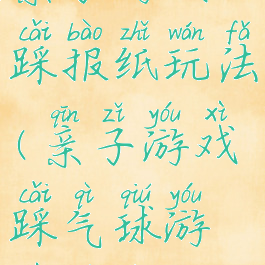 cǎi bào zhǐ wán fǎ
踩报纸玩法
qīn zǐ yóu xì
(亲子游戏
cǎi qì qiú yóu
踩气球游